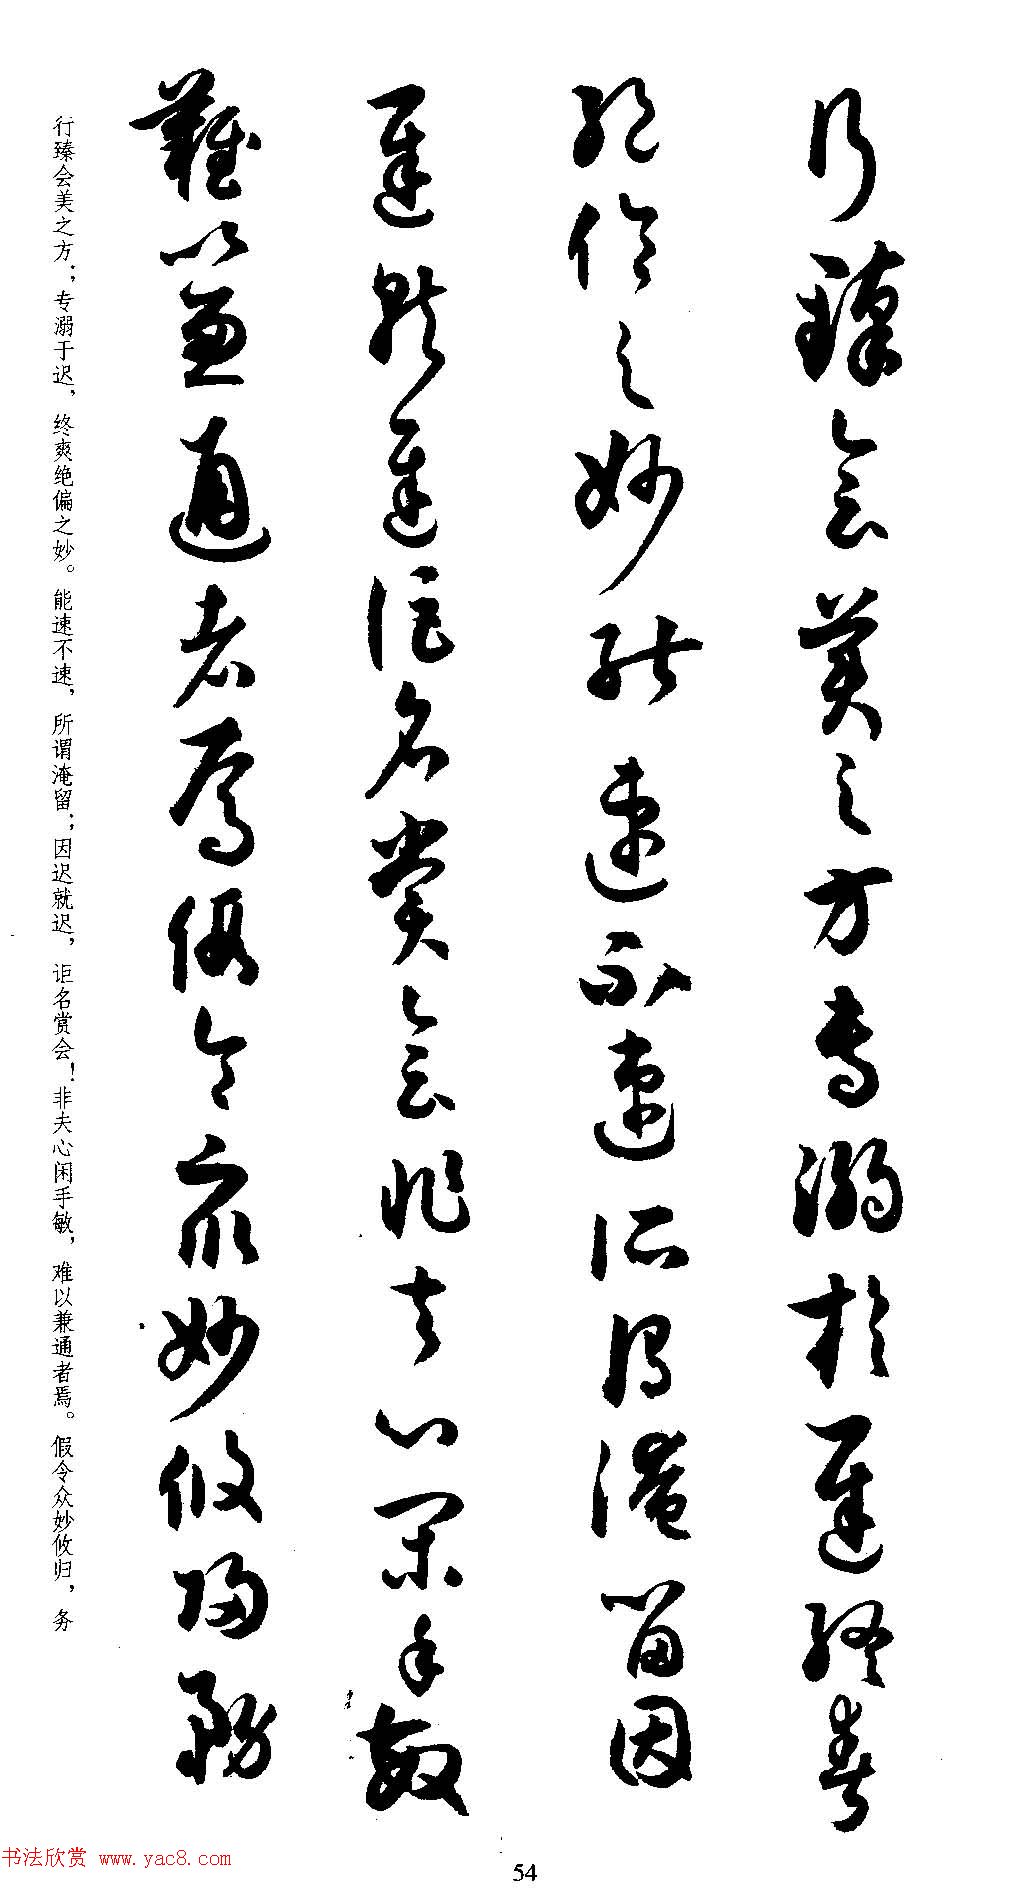 行臻會美之方專溺於遲終爽
絕倫之妙能速不速所謂淹留因
遲就遲詎名賞會非夫心閑手敏
難以兼通者焉假令衆妙攸歸務
行臻会美之方；专溺于迟，终爽绝偏之妙。能速不速，所谓淹留；因迟就迟，讵名赏会！非夫心闲手敏，难以兼通者焉。假令众妙攸归，务
书法欣赏 www.yac8.com
54